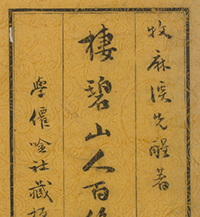 牧麻溪先醒著
棲碧山人百
學僊唫社藏